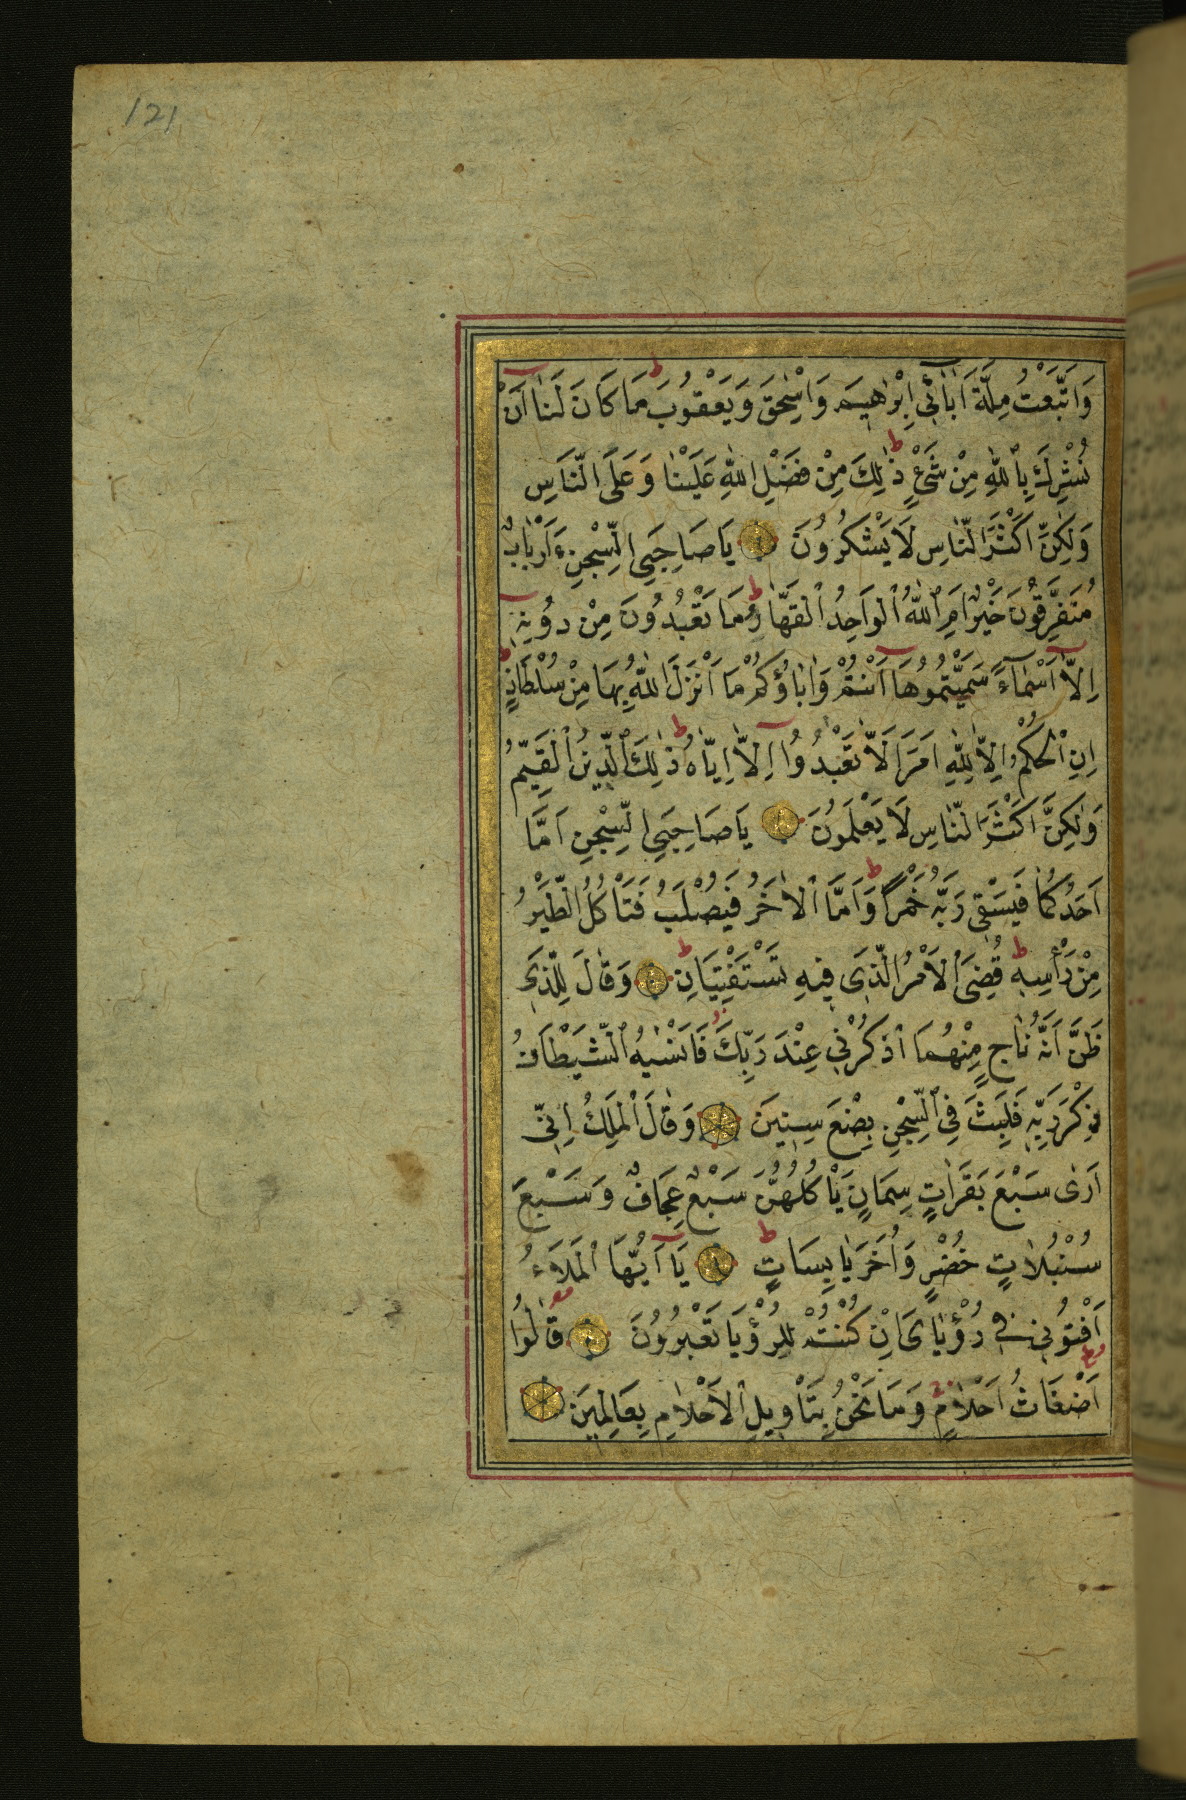 121
وَاتَّبَعْتُ مِلَّةَ اٰبَائٓي اِبْرٰهِيمَ وَاِسْحٰقَ وَيَعْقُوبَ ط مَا كَانَ لَنَا اَنْ
نُشْرِكَ بِاللّٰهِ مِنْ شَيْءٍ ط ذٰلِكَ مِنْ فَضْلِ اللّٰهِ عَلَيْنَا وَعَلَى النَّاسِ
وَلٰكِنَّ اَكْثَرَ النَّاسِ لَا يَشْكُرُونَ يَا صَاحِبَيِ السِّجْنِ ءَاَرْبَابٌ
مُتَفَرِّقُونَ خَيْرٌ اَمِ اللّٰهُ الْوَاحِدُ الْقَهَّارُ ط مَا تَعْبُدُونَ مِنْ دُونِهٖ
اِلَّا اَسْمَاءً سَمَّيْتُمُوهَا اَنْتُمْ وَاٰبَاؤُكُمْ مَا اَنْزَلَ اللّٰهُ بِهَا مِنْ سُلْطَانٍ ط
اِنِ الْحُكْمُ اِلَّا لِلّٰهِ اَمَرَ اَلَّا تَعْبُدُوا اِلَّا اِيَّاهُ ط ذٰلِكَ الدِّينُ الْقَيِّمُ
وَلٰكِنَّ اَكْثَرَ النَّاسِ لَا يَعْلَمُونَ يَا صَاحِبَيِ السِّجْنِ اَمَّا
اَحَدُكُمَا فَيَسْقٖي رَبَّهُ خَمْرًا ط وَاَمَّا الْاٰخَرُ فَيُصْلَبُ فَتَأْكُلُ الطَّيْرُ
مِنْ رَأْسِهٖ ط قُضِيَ الْاَمْرُ الَّذٖي فٖيهِ تَسْتَفْتِيَانِ ط وَقَالَ لِلَّذٖي
ظَنَّ اَنَّهُ نَاجٍ مِنْهُمَا اذْكُرْنٖي عِنْدَ رَبِّكَ ز فَاَنْسٰيهُ الشَّيْطَانُ
ذِكْرَ رَبِّهٖ فَلَبِثَ فِي السِّجْنِ بِضْعَ سِنٖينَ وَقَالَ الْمَلِكُ اِنّٖي
اَرٰى سَبْعَ بَقَرَاتٍ سِمَانٍ يَأْكُلُهُنَّ سَبْعٌ عِجَافٌ وَسَبْعَ
سُنْبُلَاتٍ خُضْرٍ وَاُخَرَ يَابِسَاتٍ ط يَا اَيُّهَا الْمَلَاءُ
اَفْتُونٖي فٖي رُؤْيَايَ اِنْ كُنْتُمْ لِلرُّؤْيَا تَعْبُرُونَ قَالُوا
اَضْغَاثُ اَحْلَامٍ وَمَا نَحْنُ بِتَأْوٖيلِ الْاَحْلَامِ بِعَالِمٖينَ